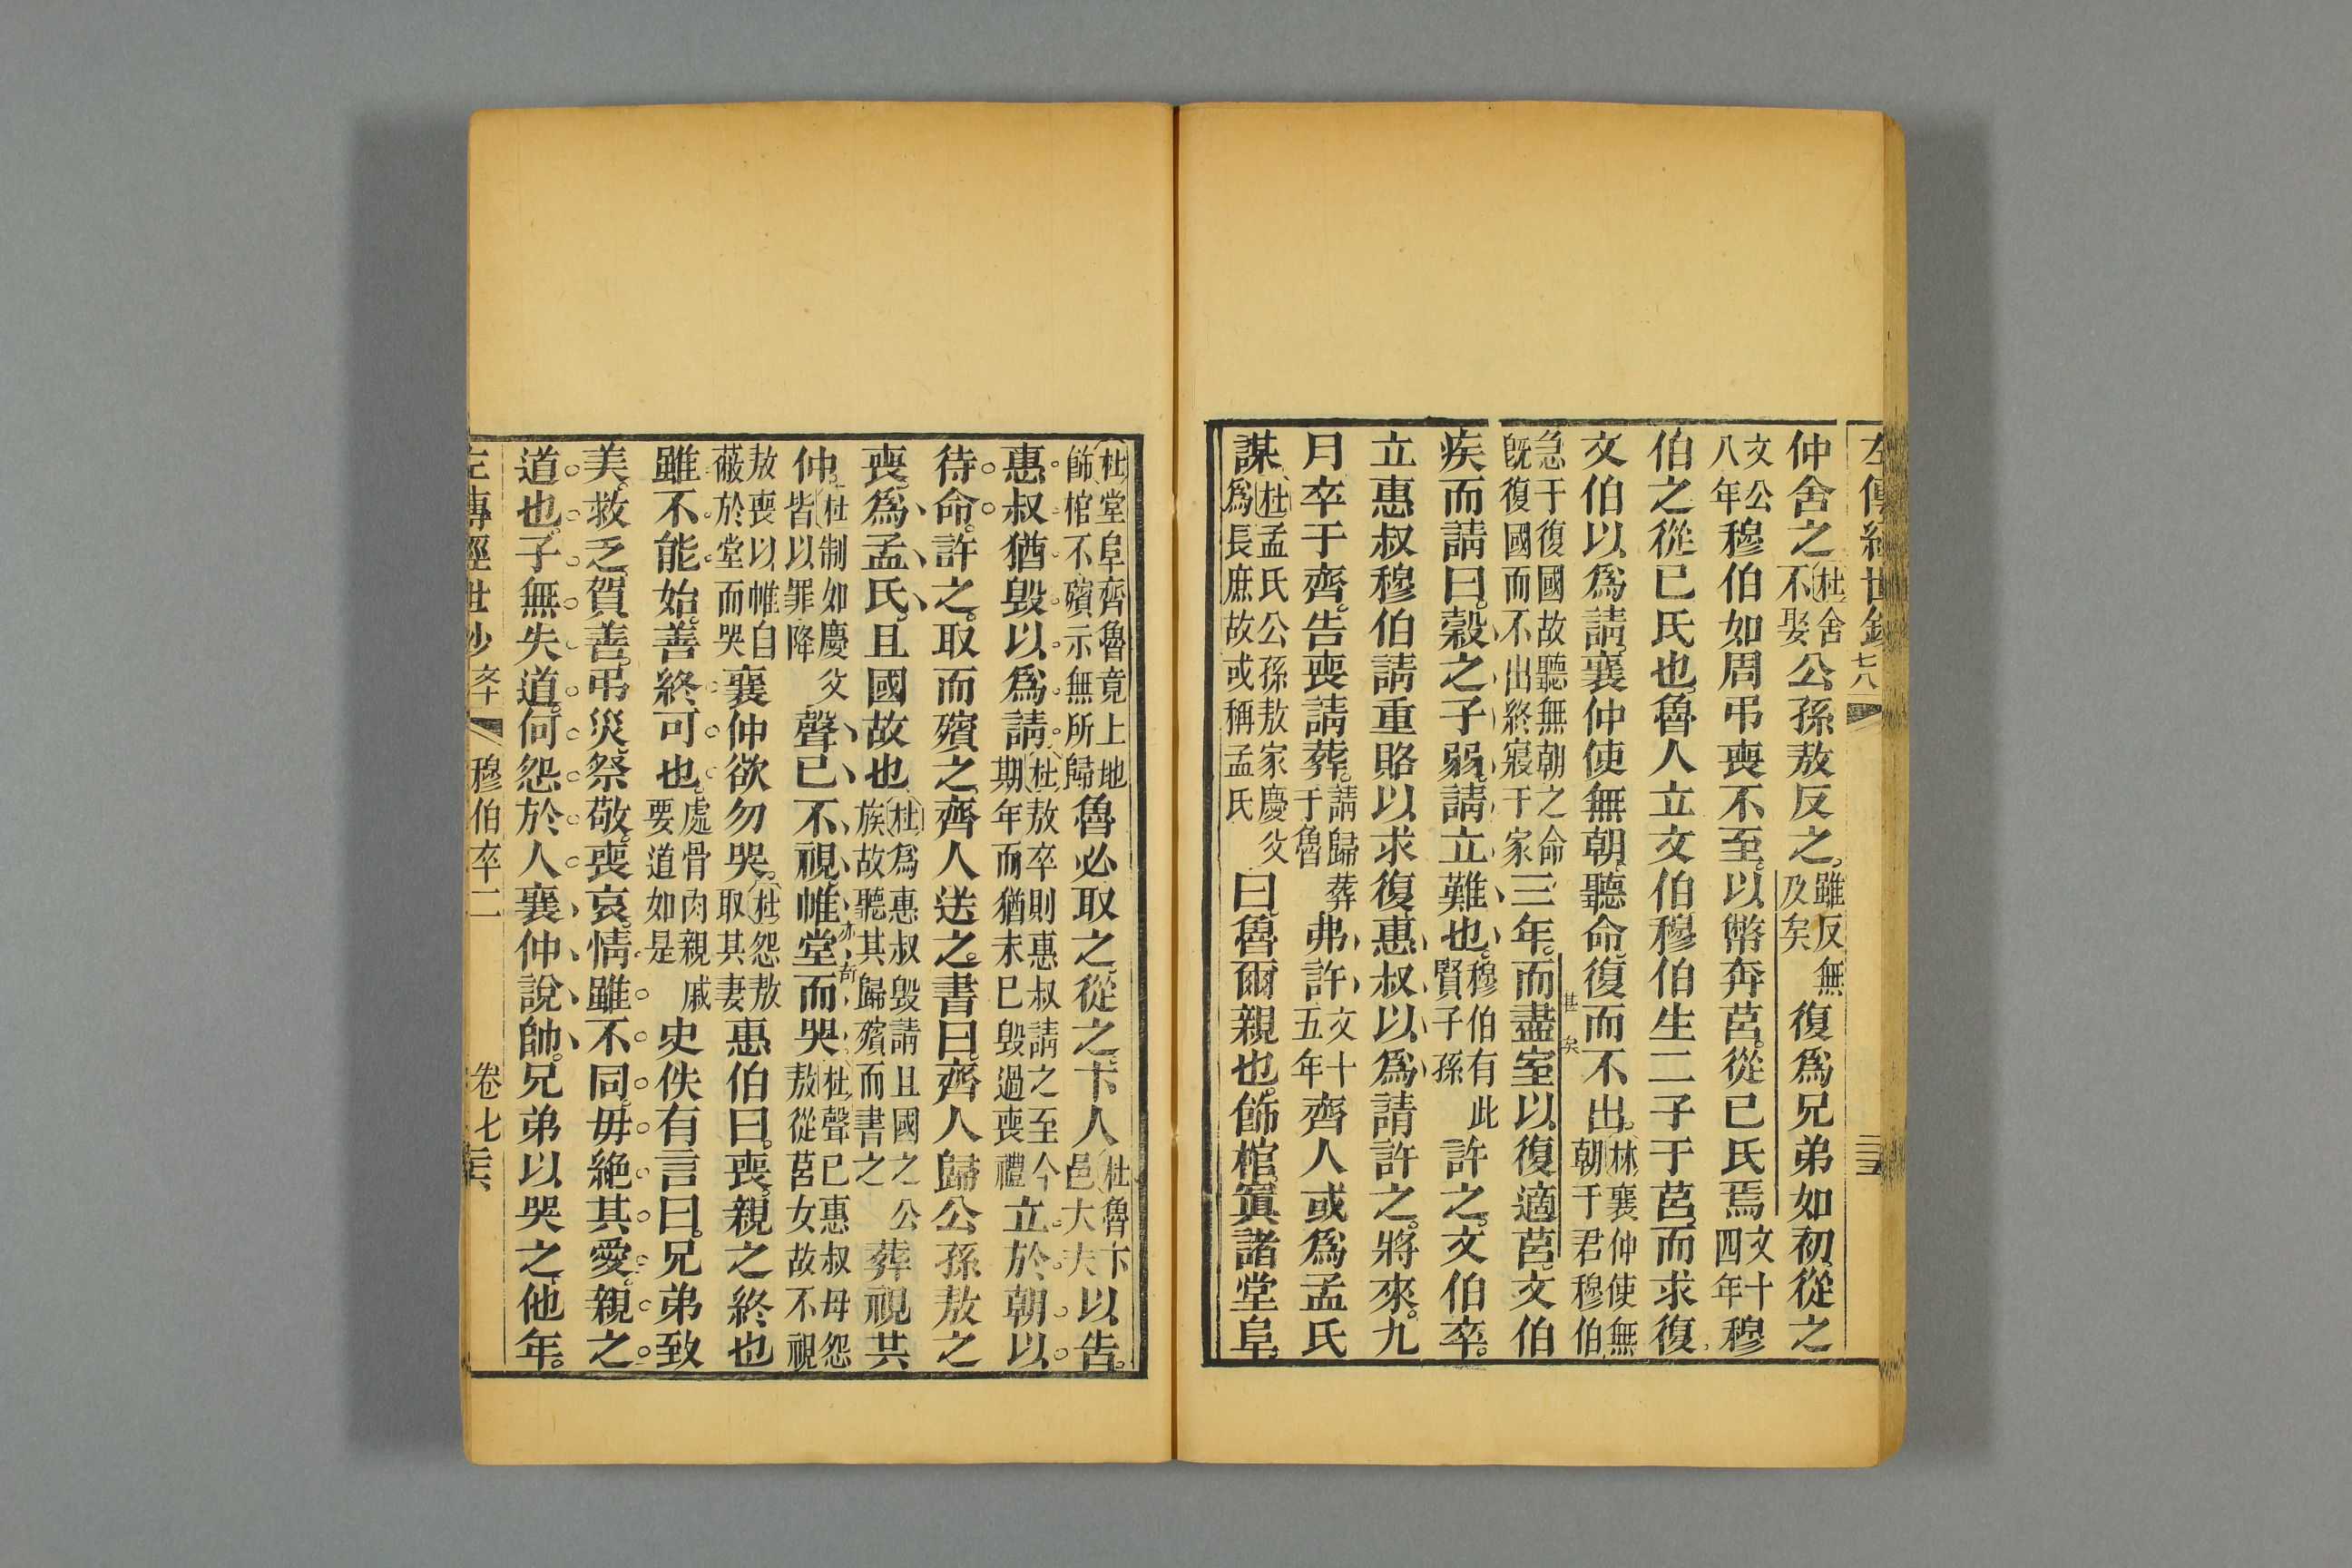 仲舍之杜舍不娶公孫敖反之雖反無及矣復爲兄弟如初從之
文公八年穆伯如周弔喪不至以幣奔莒從已氏焉文十四年穆
伯之從已氏也魯人立文伯穆伯生二子于莒而求復
文伯以爲請襄仲使無朝聽命復而不出林襄仲使無朝于君穆伯
急于復國故聽無朝之命旣復國而不出終寢于家三年而盡室以復適莒文伯
甚矣
疾而請曰穀之子弱請立難也穆伯有此賢子孫許之文伯卒
立惠叔穆伯請重賂以求復惠叔以爲請許之將來九
月卒于齊告喪請葬請歸葬于魯弗許文十五年齊人或爲孟氏
謀杜孟氏公孫敖家慶父爲長庶故或稱孟氏曰魯爾親也飾棺寘諸堂阜
杜堂阜齊魯竟上地飾棺不殯示無所歸魯必取之從之卞人杜魯卞邑大夫以告
惠叔猶毀以爲請杜敖卒則惠叔請之至今期年而猶未已毀過喪禮立於朝以
待命許之取而殯之齊人送之書曰齊人歸公孫敖之
喪爲孟氏且國故也杜爲惠叔毀請且國之公族故聽其歸殯而書之葬視共
仲杜制如慶父皆以罪降聲已不視帷堂而哭杜聲已惠叔母怨敖從莒女故不視
亦奇
敖喪以帷自蔽於堂而哭襄仲欲勿哭杜怨敖取其妻惠伯曰喪親之終也
雖不能始善終可也處骨肉親戚要道如是史佚有言曰兄弟致
美救乏賀善弔災祭敬喪哀情雖不同毋絶其愛親之
道也子無失道何怨於人襄仲說帥兄弟以哭之他年
穆伯卒二 卷七